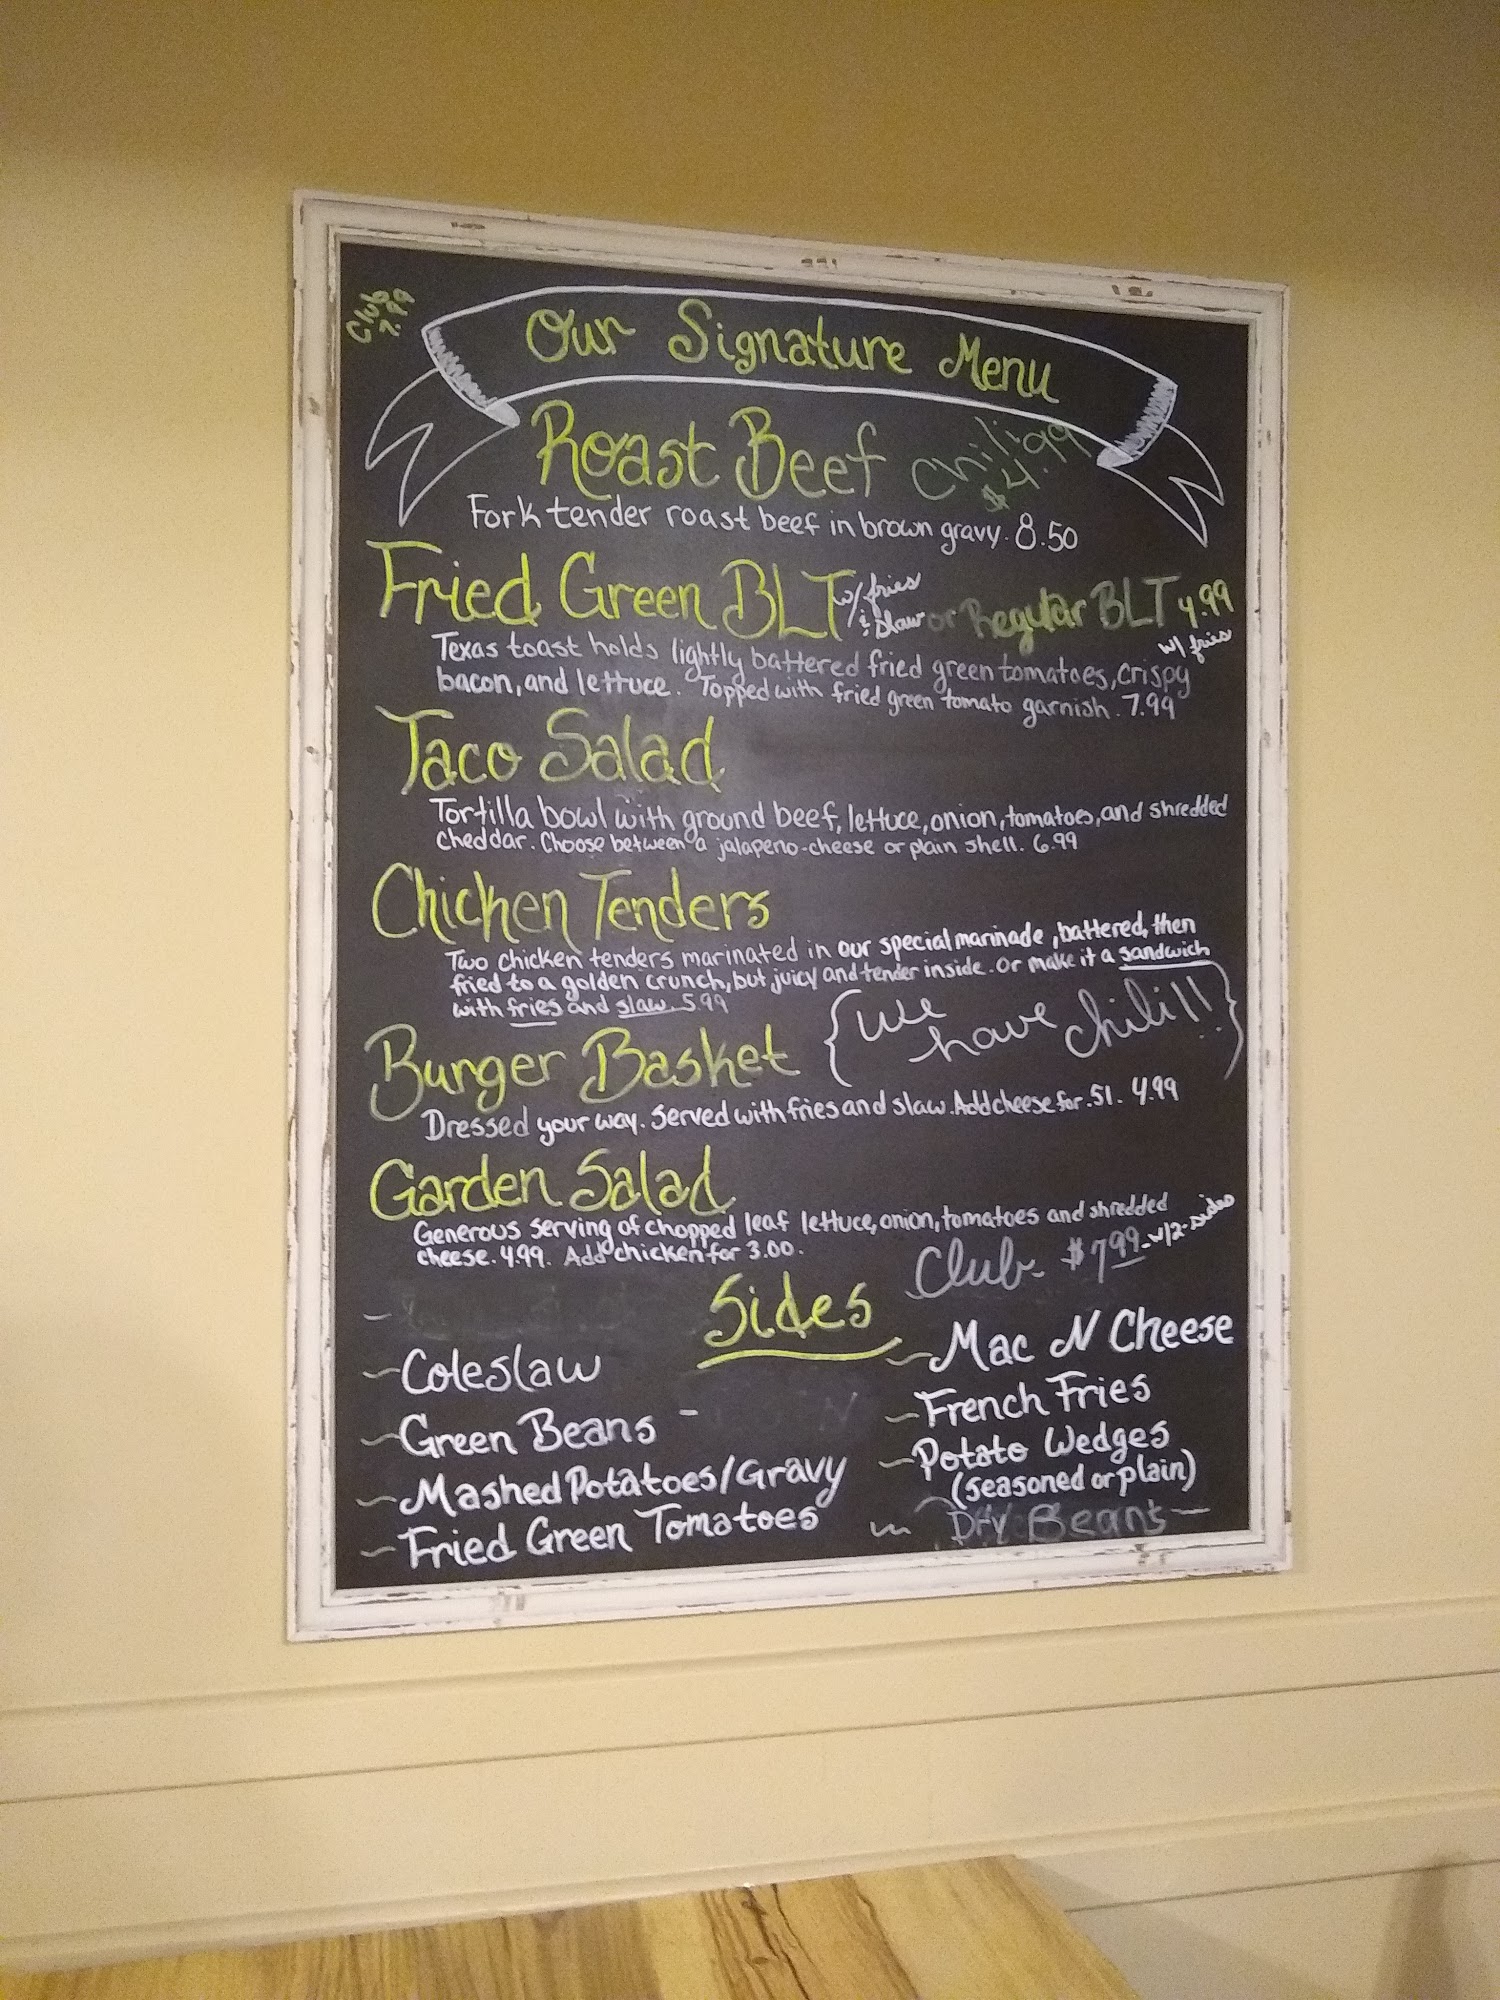 Club
7.99
Our Signature Menu
Roast Beef
Chili
$4.99
Fork tender roast beef in brown gravy. 8.50
Fried Green BLT w/ fries & slaw or Regular BLT 4.99
w/ fries
Texas toast holds lightly battered fried green tomatoes, crispy
bacon, and lettuce. Topped with fried green tomato garnish. 7.99
Taco Salad
Tortilla bowl with ground beef, lettuce, onion, tomatoes, and shredded
cheddar. Choose between a jalapeno-cheese or plain shell. 6.99
Chicken Tenders
Two chicken tenders marinated in our special marinade, battered, then
fried to a golden crunch, but juicy and tender inside. Or make it a sandwich
with fries and slaw. 5.99
{We have chili!!}
Burger Basket
Dressed your way. Served with fries and slaw. Add cheese for .51. 4.99
Garden Salad
Generous serving of chopped leaf lettuce, onion, tomatoes and shredded
cheese. 4.99. Add chicken for 3.00.
Club $7.99 - w/2-sides
Sides
~Coleslaw
~Green Beans -
~Mashed Potatoes/Gravy
~Fried Green Tomatoes
~Mac N Cheese
~French Fries
~Potato Wedges
(seasoned or plain)
~ Dry Beans -